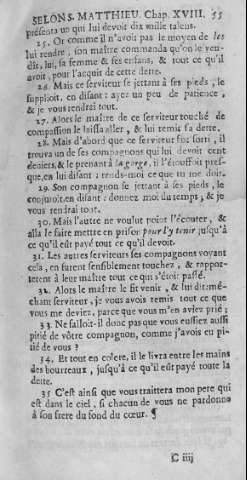 SELON S. MATTHIEU Chap. XVIII. 55
présenta un qui lui devoit dix mille talens.
25. Or comme il n'avoit pas le moyen de les
lui rendre, son maître commanda qu'on le ven-
dît, lui, sa femme & ses enfans, & tout ce qu'il
avoit, pour l'acquit de cette dette.
26. Mais ce serviteur se jettant à ses pieds, le
supplioit, en disant : ayez un peu de patience,
& je vous rendrai tout.
27. Alors le maître de ce serviteur touché de
compassion le laissa aller, & lui remit sa dette.
28. Mais d'abord que ce serviteur fut sorti, il
trouva un de ses compagnons qui lui devoit cent
deniers, & le prenant à la gorge, il l'étouffoit pres-
que, en lui disant : rends-moi ce que tu me dois.
29. Son compagnon se jettant à ses pieds, le
conjuroit, en disant : donnez moi du temps, & je
vous rendrai tout.
30. Mais l'autre ne voulut point l'écouter, &
alla le faire mettre en prison pour l'y tenir jusqu'à
ce qu'il eût payé tout ce qu'il devoit.
31. Les autres serviteurs ses compagnons voyant
cela, en furent sensiblement touchez, & rappor-
terent à leur maître tout ce qui s'étoit passé.
32. Alors le maître le fit venir, & lui dit : mé-
chant serviteur, je vous avois remis tout ce que
vous me deviez, parce que vous m'en aviez prié ;
33. Ne falloit-il donc pas que vous eussiez aussi
pitié de vôtre compagnon, comme j'avois eu pi-
tié de vous ?
34. Et tout en colere, il le livra entre les mains
des bourreaux, jusqu'à ce qu'il eût payé toute la
dette.
35 C'est ainsi que vous traittera mon pere qui
est dans le ciel, si chacun de vous ne pardonne
à son frere du fond du cœur. ¶
C iiij